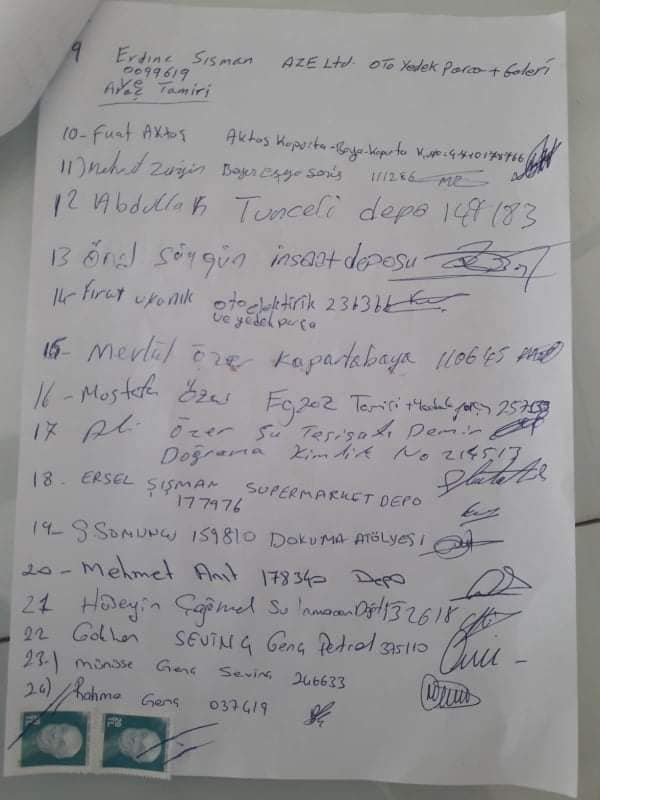 9 Erdinç Şişman AZE Ltd. OTO Yedek Parça + Galeri
0099619
ve
Araç Tamiri
10- Fuat AKtaş Aktaş Kaporta-Boya-Kaporta
11) Zengin Beyaz eşya Servis 111286
12 Abdullah Tunceli depo 149183
13 Önal Söygün inşaat deposu
14- Fırat uyanık oto elektirik 236366
ve yedek parça
15- Mevlüt Özer Kaportaboya 110645
16- Mustafa Özer Egzoz Tamiri + Yedek parça
17 Ali Özer Su Tesisatı Demir
Doğrama Kimlik No 214513
18. ERSEL ŞIŞMAN SUPERMARKET DEPO
177976
19- Ş SOMUNCU 159810 DOKUMA ATÖLYESİ
20- Mehmet Anıt 178340 Depo
21 Hüseyin Su 132618
22 Gökhan SEVİNÇ Genç Petrol 375110
23-) münüse Genç Sevinç 246633
24) Rahme Genç 037419